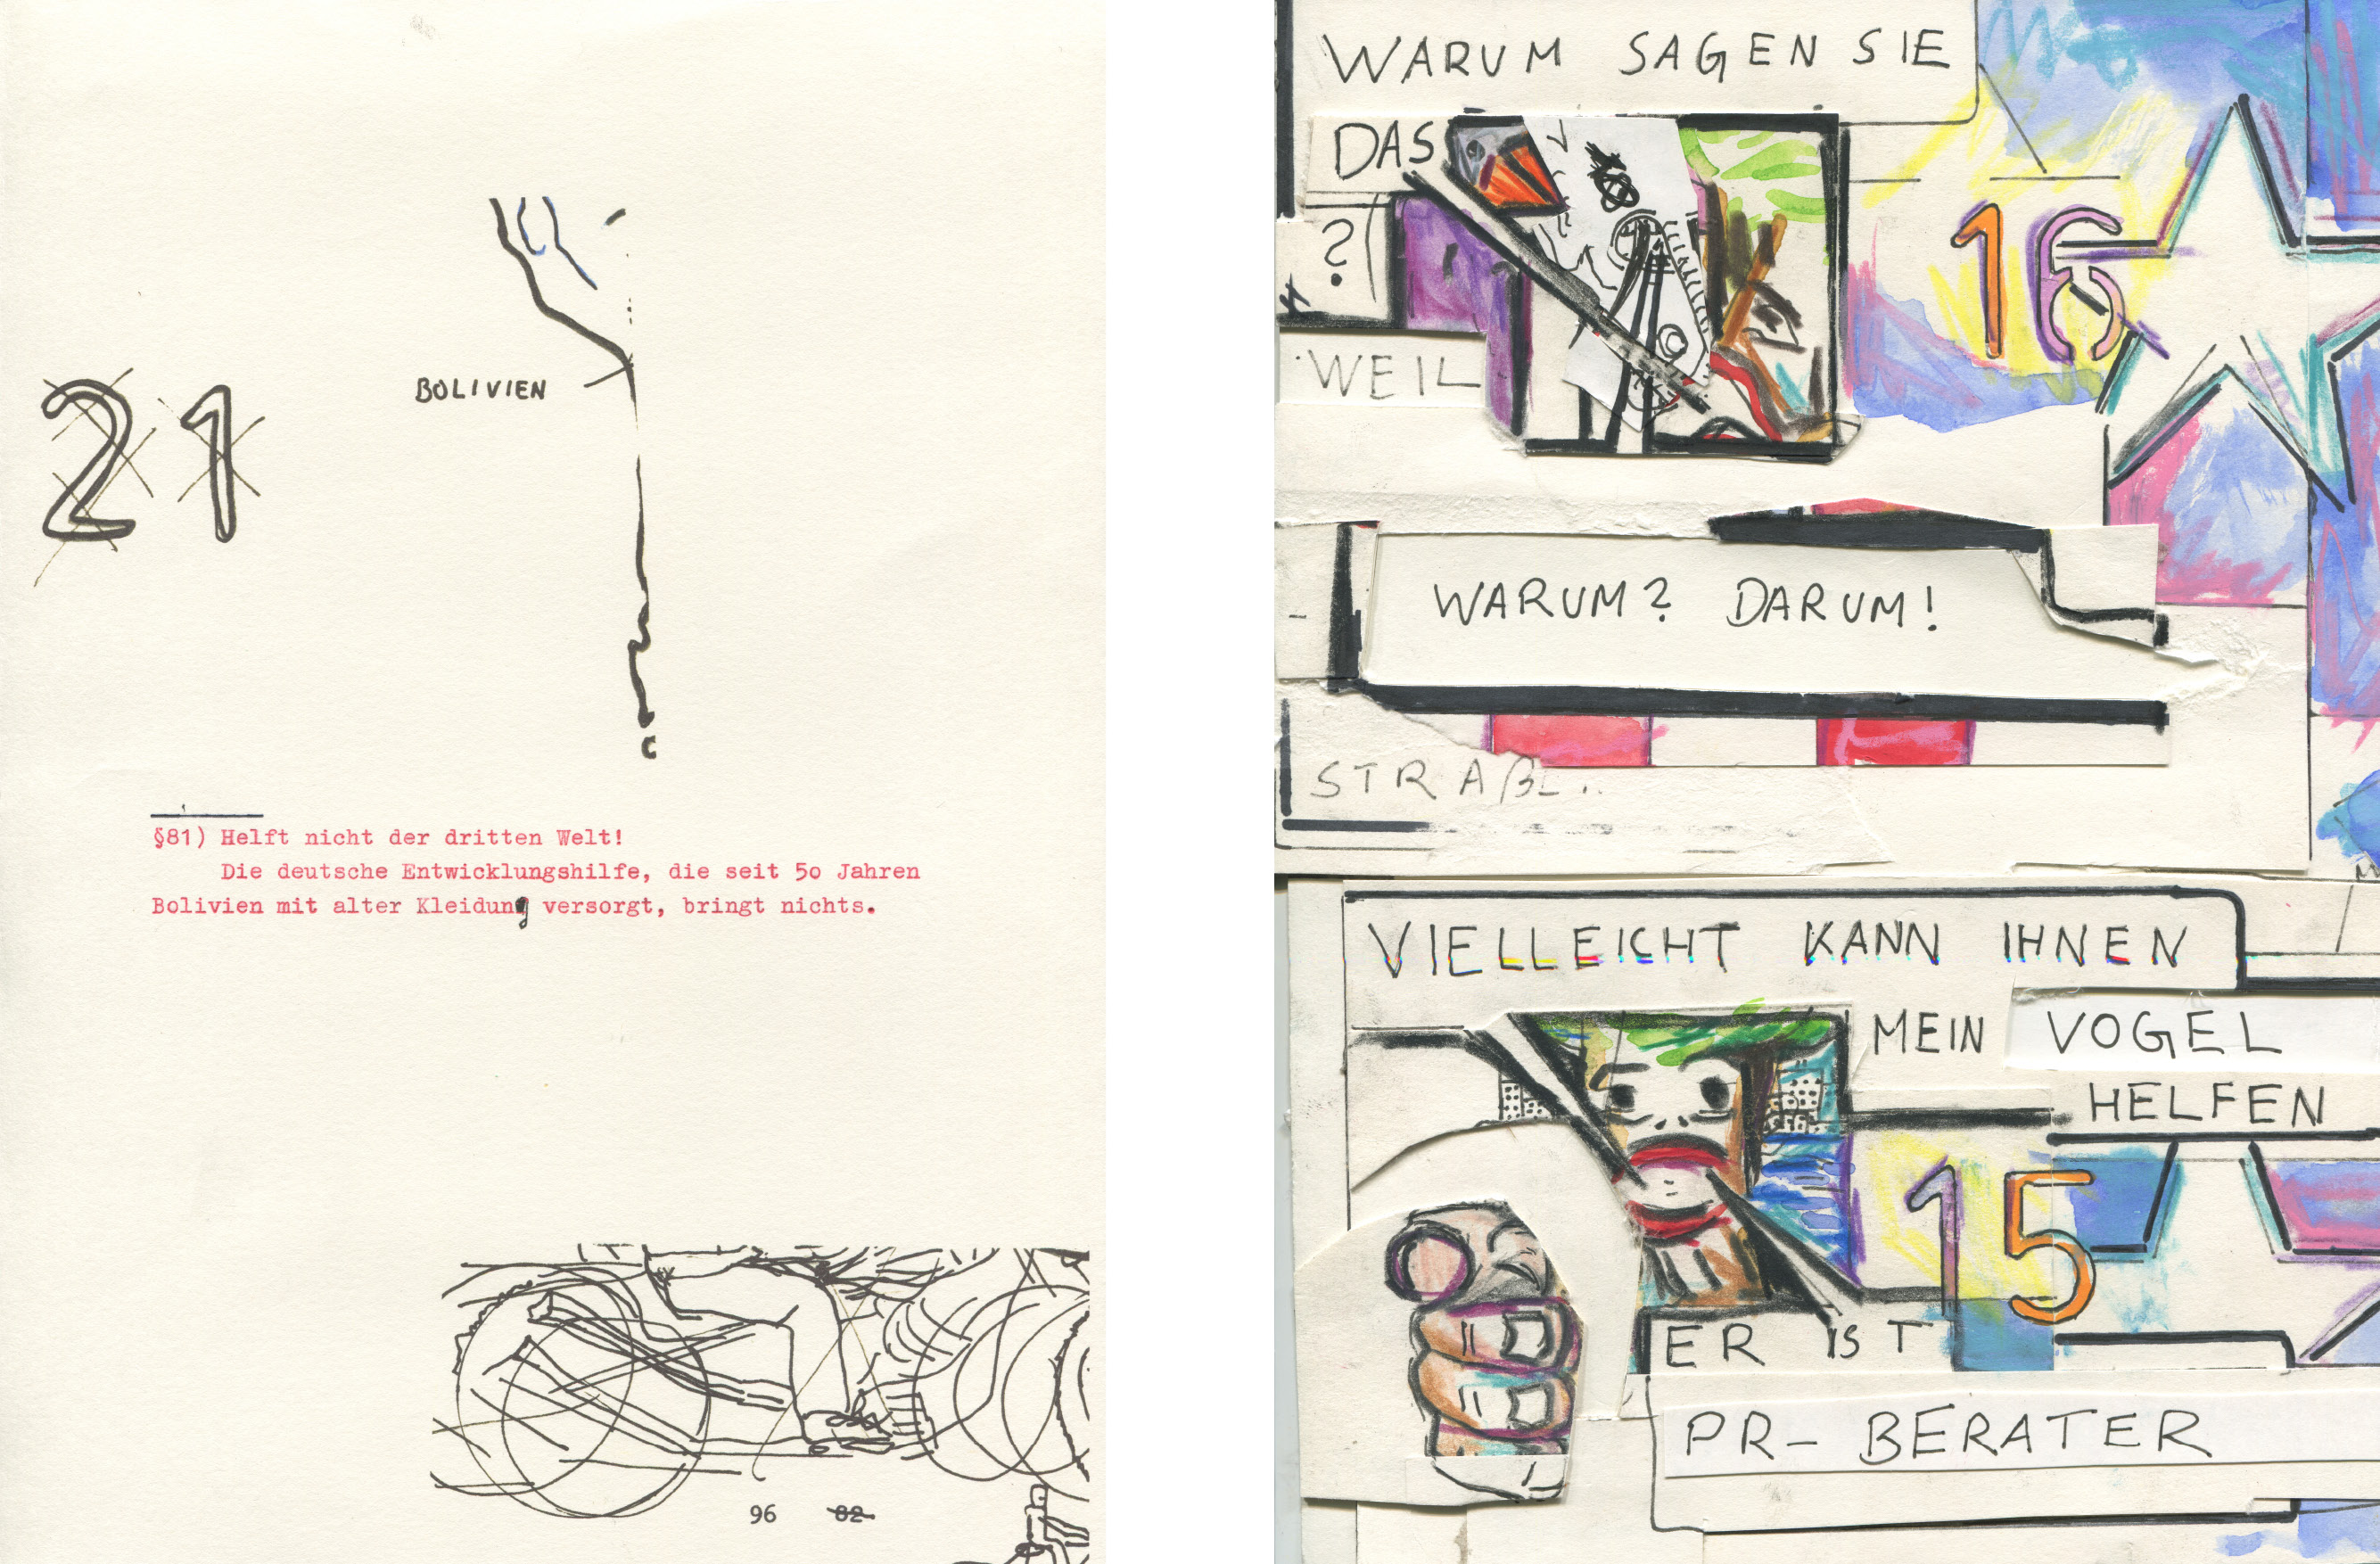 21
BOLIVIEN
§81) Helft nicht der dritten Welt!
Die deutsche Entwicklungshilfe, die seit 50 Jahren
Bolivien mit alter Kleidung versorgt, bringt nichts.
96 82
WARUM SAGEN SIE
DAS
?
16
WEIL
WARUM? DARUM!
STRAßE..
VIELLEICHT KANN IHNEN
MEIN VOGEL
HELFEN
15
ER IST
PR- BERATER